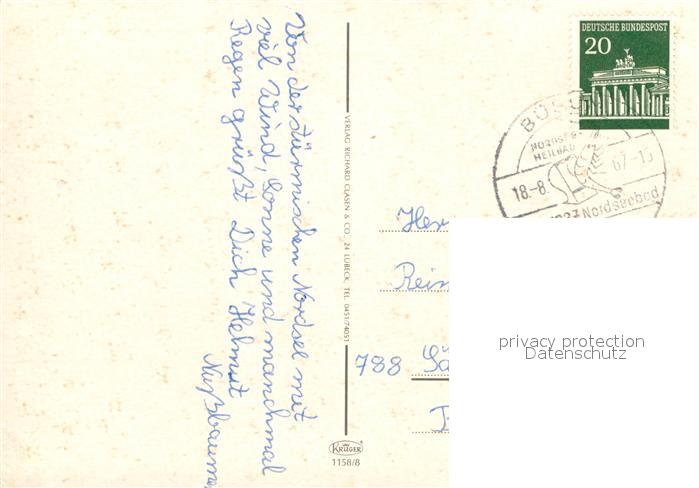 Von der stürmischen Nordsee mit
viel Wind, Sonne und manchmal
Regen grüßt Dich Helmut
Nußbaumer
VERLAG RICHARD CLASEN & CO., 24 LÜBECK, TEL. 0451/74051
KRÜGER
1158/8
DEUTSCHE BUNDESPOST
20
BÜS
NORDSEE-
HEILBAD
18.-8. 67-15
1837 Nordseebad
Her
Rei
788 Sä
privacy protection
Datenschutz